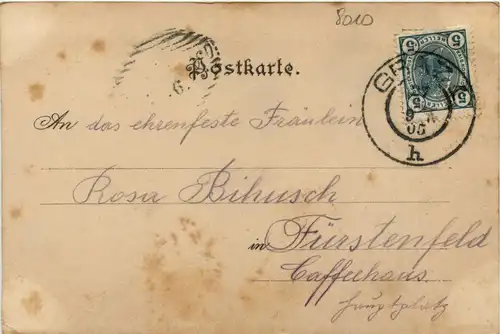 8010
Postkarte.
5 5
5 5
9
05
h
6.
An das ehrenfeste Fräulein
Rosa Bihusch
in Fürstenfeld
Caffeehaus.
Hauptplatz